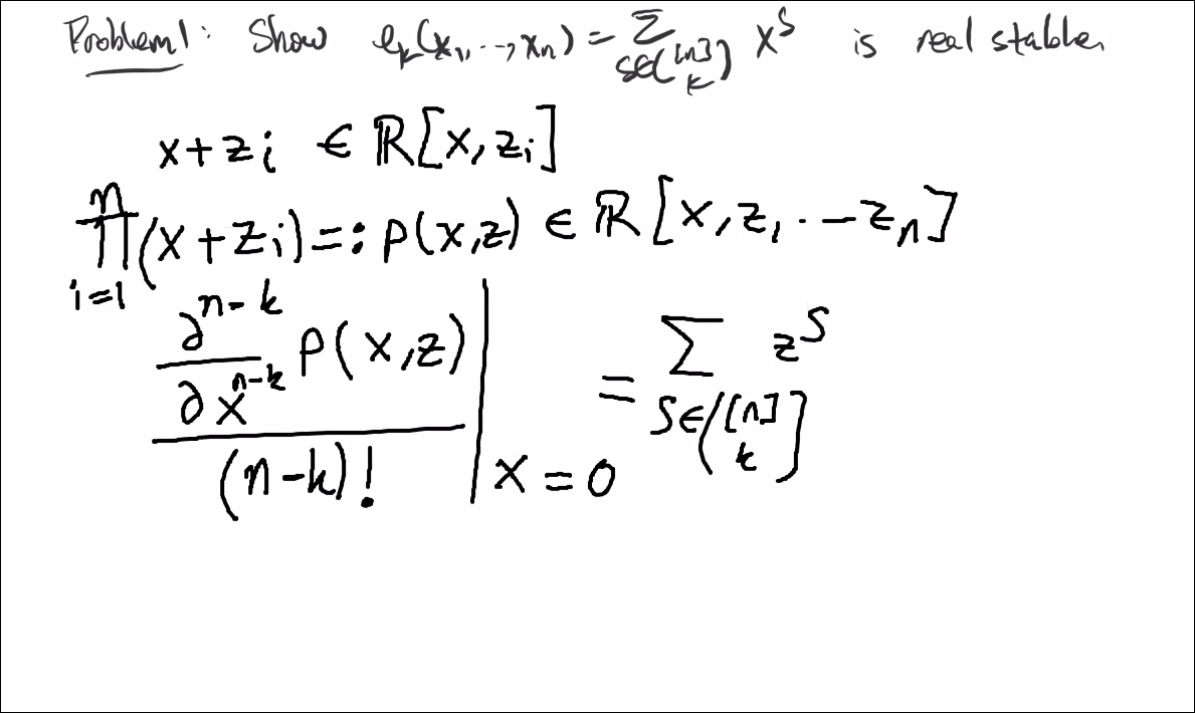 Problem 1: Show eₖ(x₁, ..., xₙ) = Σ_{S∈([n] k)} x^S is real stable.
x + zᵢ ∈ ℝ[x, zᵢ]
∏_{i=1}^{n} (x + zᵢ) =: p(x,z) ∈ ℝ[x, z₁ ... zₙ]
∂^{n-k}/∂x^{n-k} p(x,z) / (n-k)! |_{x=0} = Σ_{S∈([n] k)} z^S